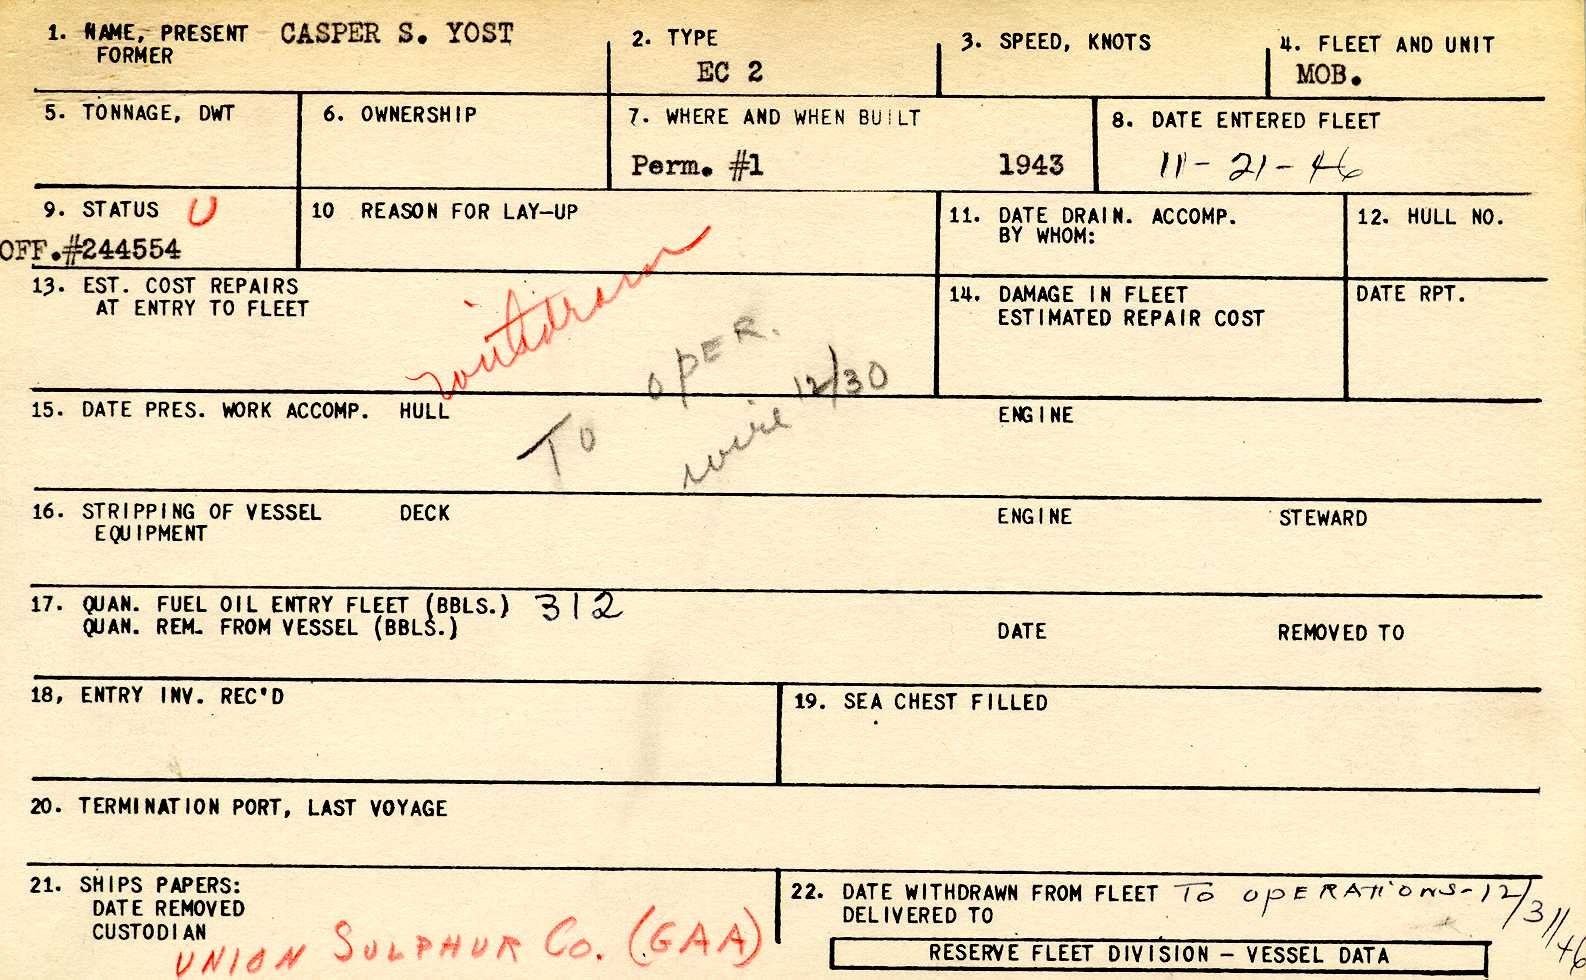 1. NAME, PRESENT CASPER S. YOST
FORMER
2. TYPE
EC 2
3. SPEED, KNOTS
4. FLEET AND UNIT
MOB.
5. TONNAGE, DWT
6. OWNERSHIP
7. WHERE AND WHEN BUILT
Perm. #1 1943
8. DATE ENTERED FLEET
11-21-46
9. STATUS U
OFF.#244554
10 REASON FOR LAY-UP
11. DATE DRAIN. ACCOMP.
BY WHOM:
12. HULL NO.
13. EST. COST REPAIRS
AT ENTRY TO FLEET
withdrawn
To OPER.
wire 12/30
14. DAMAGE IN FLEET
ESTIMATED REPAIR COST
DATE RPT.
15. DATE PRES. WORK ACCOMP. HULL ENGINE
16. STRIPPING OF VESSEL DECK ENGINE STEWARD
EQUIPMENT
17. QUAN. FUEL OIL ENTRY FLEET (BBLS.) 312
QUAN. REM. FROM VESSEL (BBLS.) DATE REMOVED TO
18, ENTRY INV. REC'D
19. SEA CHEST FILLED
20. TERMINATION PORT, LAST VOYAGE
21. SHIPS PAPERS:
DATE REMOVED
CUSTODIAN
UNION SULPHUR CO. (GAA)
22. DATE WITHDRAWN FROM FLEET TO OPERATIONS-12/31/46
DELIVERED TO
RESERVE FLEET DIVISION – VESSEL DATA